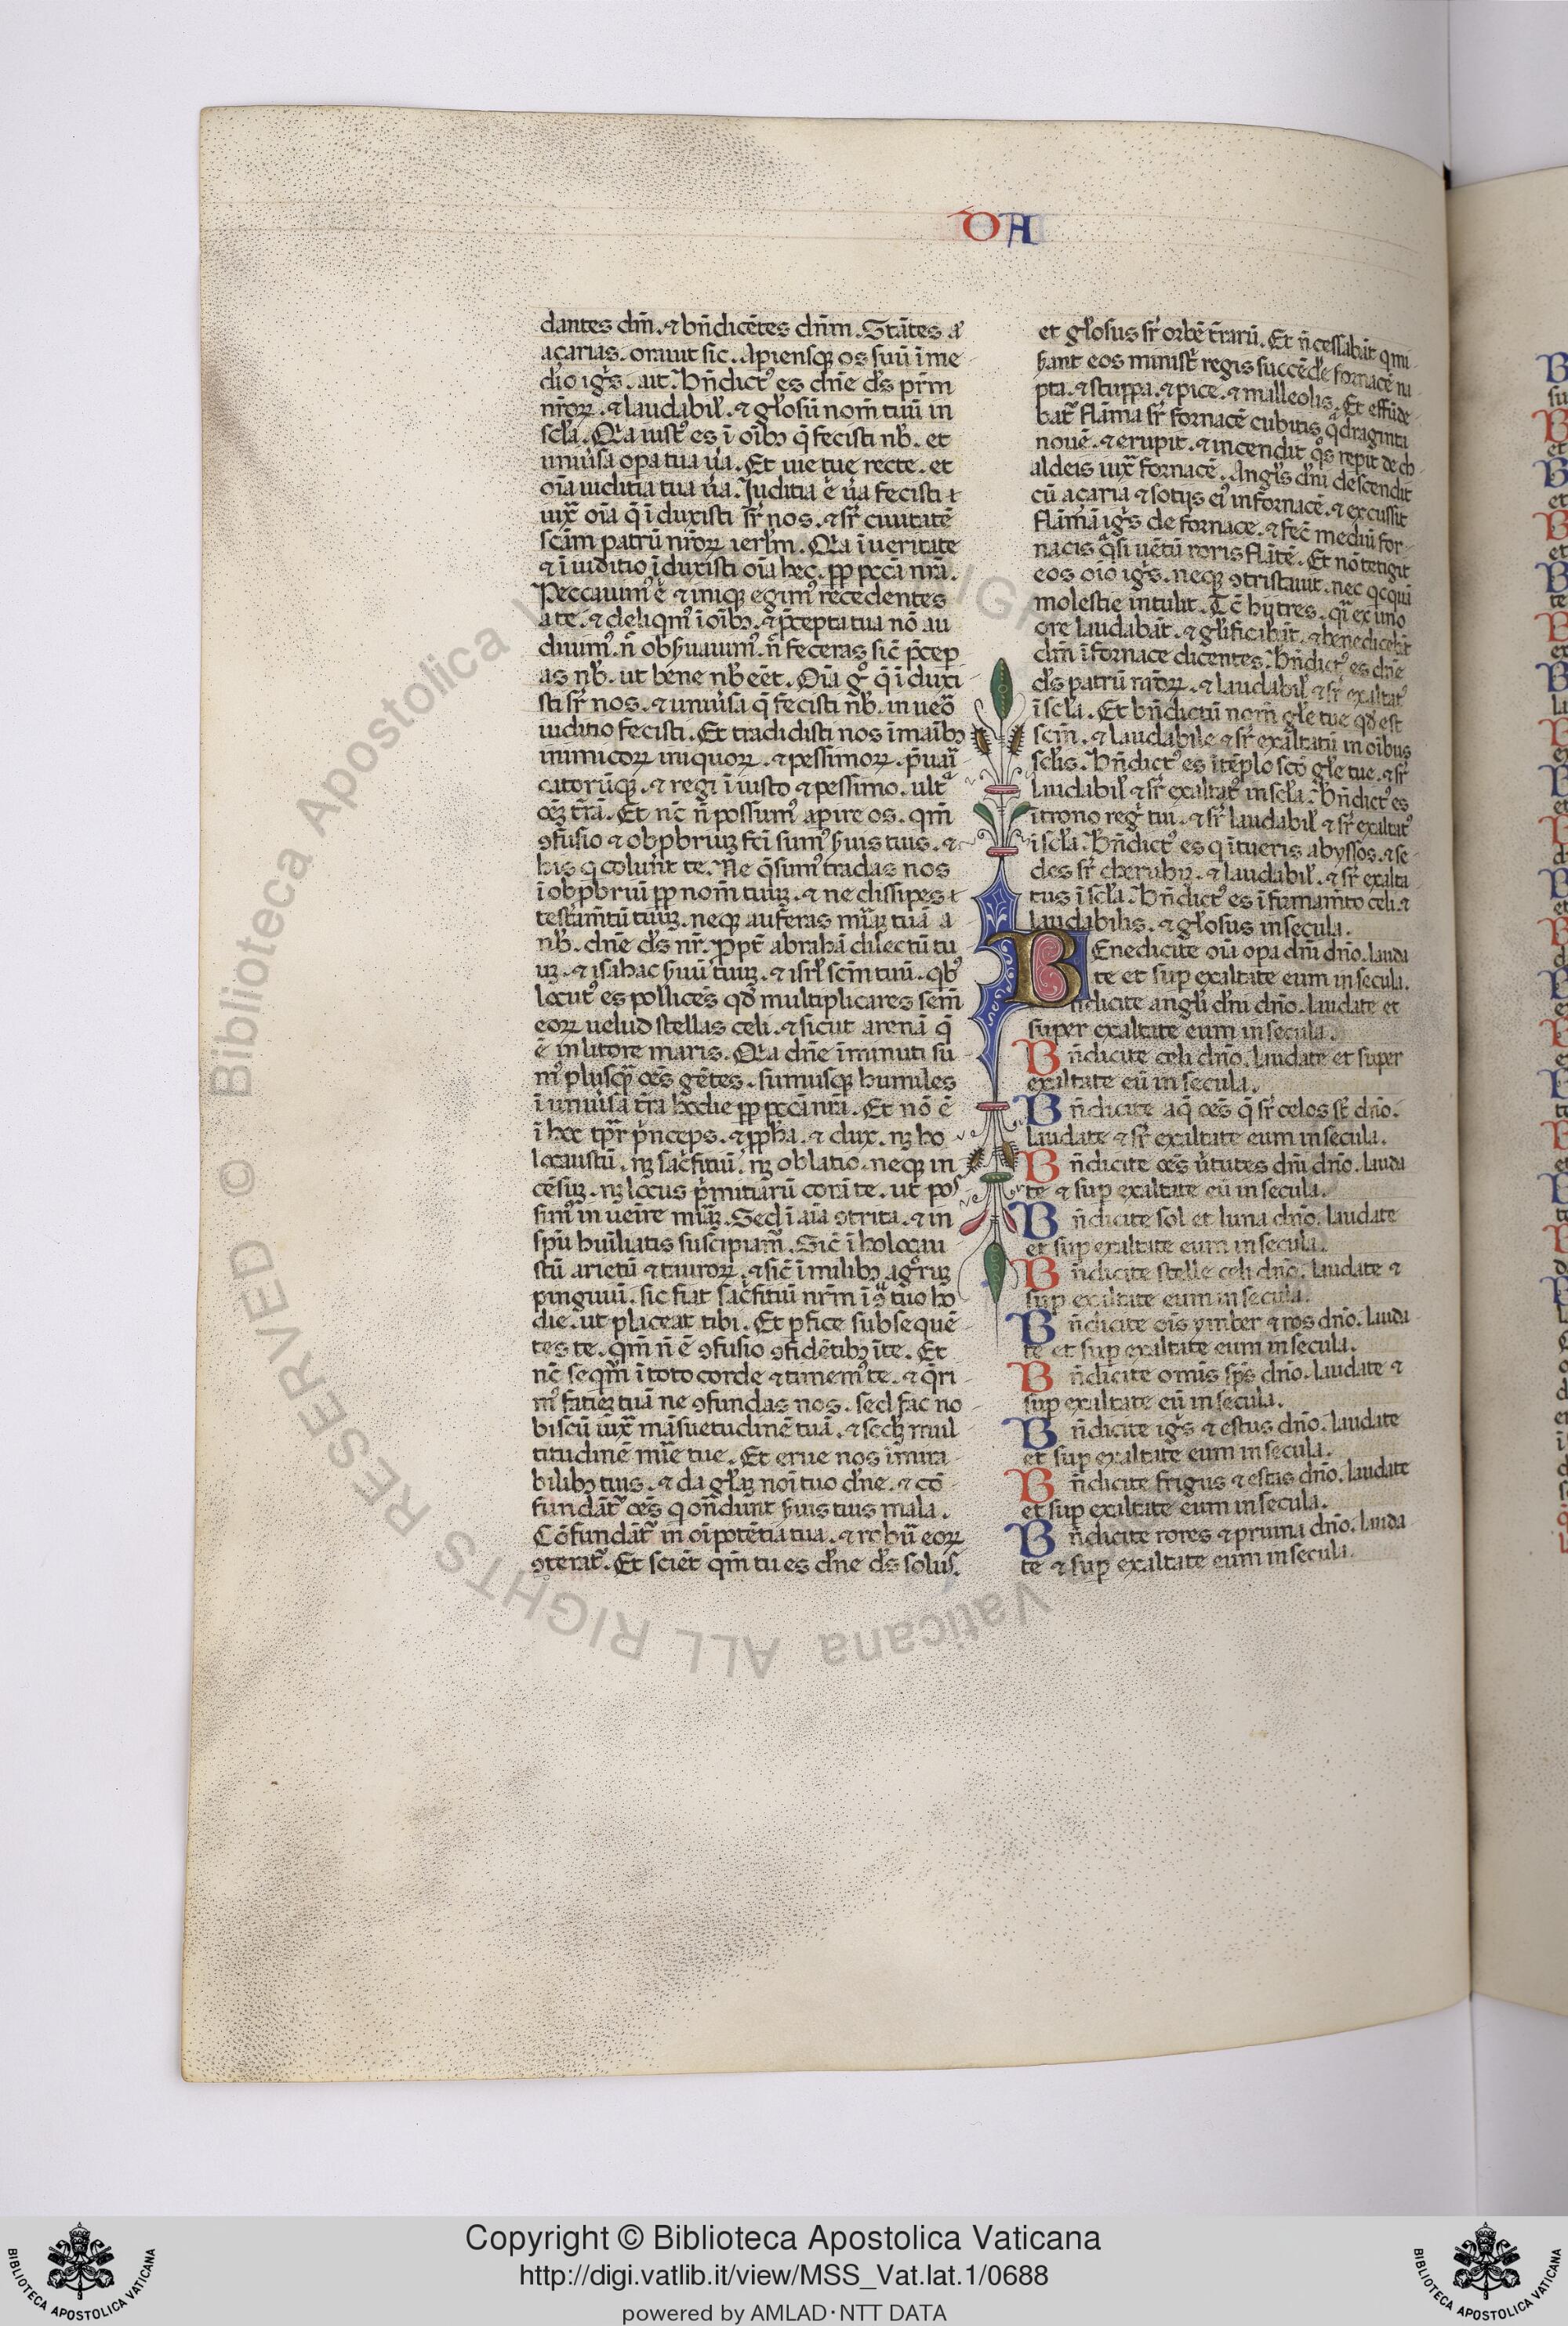 DA
dantes dm̄. ⁊ bn̄dicētes dn̄m. Stātes aͥ
açarias. orauit sic. Apiensqꝫ os suū ī me
dio igͥs. ait. Bn̄dictꝰ es dn̄e ds̄ pr̄m
nr̄oꝝ. ⁊ laudabil̓. ⁊ gl̓osū nom̄ tuū in
scl̓a. Qr̄a iustꝰ es ī oībꝫ q̄ fecisti nb̓. et
uniūsa opa tua ūa. Et uie tue recte. et
oīa iuditia tua ūa. Iuditia .n. ūa fecisti
iux̄ oīa q̄ īduxisti sr̄ nos. ⁊ sr̄ ciuitatē
scām patrū nr̄oꝝ ierl̓m. Qr̄a ī ueritate
⁊ ī iuditio īduxisti oīa hec. ꝓꝑ pcc̄a nr̄a.
Peccauimꝰ .n. ⁊ iniqꝫ egimꝰ recedentes
a te. ⁊ deliqmꝰ ī oībꝫ. ⁊ p̄cepta tua nō au
diuimꝰ. n̄ obẜuauimꝰ. n̄ feceras sic̄ p̄cep
as nb̓. ut bene nb̓ eēt. Oīa gͦ q̄ ī duxi
sti sr̄ nos. ⁊ uniūsa q̄ fecisti nb̓. in ueō
iuditio fecisti. Et tradidisti nos ī maībꝫ
inimicoꝝ iniquoꝝ. ⁊ pessimoꝝ. p̄uari
catorūqꝫ. ⁊ regi ī iusto ⁊ pessimo. ultͣ
oēꝫ tr̄ā. Et nc̄ n̄ possumꝰ apire os. qm̄
ꝯfusio ⁊ obpbriuꝫ fc̄i sumꝰ ẜuis tuis. ⁊
his q colunt te. Ne q̄sumꝰ tradas nos
ī obpbriū ꝓꝑ nom̄ tuuꝫ. ⁊ ne dissipes
testam̄tū tuuꝫ. neqꝫ auferas mīaꝫ tuā a
nb̓. dn̄e ds̄ nr̄. Ꝓpt̄ abrahā dilectū tu
uꝫ. ⁊ isahac ẜuū tuuꝫ. ⁊ isrl̓ scm̄ tuū. qbꝰ
locutꝰ es pollicēs qd̓ multiplicares sem̄
eoꝝ uelud stellas celi. ⁊ sicut arenā q̄
ē in litore maris. Qr̄a dn̄e īminuti su
mꝰ plusqꝫ oēs gētes. sumusqꝫ humiles
ī uniūsa tr̄a hodie ꝓꝑ pcc̄a nr̄a. Et nō ē
ī hoc tp̄r p̓nceps. ⁊ ꝓpha. ⁊ dux. nꝫ ho
locaustū. nꝫ sac̓fitiū. nꝫ oblatio. neqꝫ in
cēsuꝫ. nꝫ locus p̓mitiarū corā te. ut pos
simꝰ in uenire mīaꝫ. Sed ī aīa ꝯtrita. ⁊ in
spū huiliatis suscipiam̄. Sic̄ ī holocau
stū arietū ⁊ tauroꝝ. ⁊ sic̄ ī milibꝫ agnoꝝ
pinguiū. sic fiat sac̓fitiū nr̄m ī ɔ̄spectu tuo ho
die. ut placeat tibi. Et pfice subsequē
tes te. qm̄ n̄ ē ꝯfusio ꝯfidētibꝫ ī te. Et
nc̄ seqm̄ ī toto corde ⁊ timemꝰ te. ⁊ q̄ri
mꝰ fatieꝫ tuā ne ꝯfundas nos. sed fac no
biscū iūx̄ māsuetudinē tuā. ⁊ secdꝫ mul
titudinē mīe tue. Et erue nos ī mira
bilibꝫ tuis. ⁊ da gl̓aꝫ noī tuo dn̄e. ⁊ cō
fundāt̄ oēs q on̄dunt ẜuis tuis mala.
Cōfundāt̄ in oīpotētia tua. ⁊ robur eoꝝ
ꝯterat̄. Et sciēt qm̄ tu es dn̄e ds̄ solus.
et gl̓osus sr̄ orbē tr̄arū. Et n̄ cessabāt q mi
ẜant eos minist̄ regis succēdē fornacē na
pta. ⁊ stuppa. ⁊ pice. ⁊ malleolis. Et effūde
bat̄ flāma sr̄ fornacē cubitis qͣdraginta
nouē. ⁊ erupit. ⁊ incendit qͦs repit de ch
aldeis iux̄ fornacē. Angl̓s dn̄i descendit
cū açaria ⁊ sotijs eiꝰ in fornacē. ⁊ excussit
flāmā igͥs de fornace. ⁊ fec̄ mediū for
nacis qͣsi uētū roris flātē. Et nō tetigit
eos oīo igͥs. neqꝫ ꝯtristauit. nec qcquā
molestie intulit. Tc̄ hy tres. qͣ ex uno
ore laudabāt. ⁊ gl̓ificabāt. ⁊ benedicebāt
dm̄ ī fornace dicentes. Bn̄dictꝰ es dn̄e
ds̄ patrū nr̄oꝝ. ⁊ laudabil̓ ⁊ sr̄ exaltatꝰ
ī scl̓a. Et bn̄dictū nom̄ gl̓e tue qd̓ est
scm̄. ⁊ laudabile ⁊ sr̄ exaltatū in oībus
scl̓is. Bn̄dictꝰ es ī tēplo sc̄o gl̓e tue. ⁊ sr̄
laudabil̓ ⁊ sr̄ exaltatꝰ in scl̓a. Bn̄dictꝰ es
ī trono reg̓ tui. ⁊ sr̄ laudabil̓ ⁊ sr̄ exaltatꝰ
ī scl̓a. Bn̄dictꝰ es q ītueris abyssos. ⁊ se
des sr̄ cherubyꝫ. ⁊ laudabil̓. ⁊ sr̄ exalta
tus ī scl̓a. Bn̄dictꝰ es ī firmam̄to celi. ⁊
laudabilis. ⁊ gl̓osus in secula.
Benedicite oīa opa dn̄i dn̄o. lauda
te et suꝑ exaltate eum in secula.
n̄dicite angl̓i dn̄i dn̄o. laudate et
super exaltate eum in secula.
Bn̄dicite celi dn̄o. laudate et super
exaltate eū in secula.
Bn̄dicite aq̄ oēs q̄ sr̄ celos st̄ dn̄o.
laudate ⁊ sr̄ exaltate eum in secula.
Bn̄dicite oēs ūtutes dn̄i dn̄o. lauda
te ⁊ suꝑ exaltate eū in secula.
Bn̄dicite sol et luna dn̄o. laudate
et suꝑ exaltate eum in secula.
Bn̄dicite stelle celi dn̄o. laudate ⁊
suꝑ exaltate eum in secula.
Bn̄dicite oīs ymber ⁊ ros dn̄o. lauda
te et suꝑ exaltate eum in secula.
Bn̄dicite omīs sps̄ dn̄o. laudate ⁊
suꝑ exaltate eū in secula.
Bn̄dicite igͥs ⁊ estus dn̄o. laudate
et suꝑ exaltate eum in secula.
Bn̄dicite frigus ⁊ estas dn̄o. laudate
et suꝑ exaltate eum in secula.
Bn̄dicite rores ⁊ pruina dn̄o. lauda
te ⁊ suꝑ exaltate eum in secula.
© Biblioteca Apostolica Vaticana ALL RIGHTS RESERVED
Copyright © Biblioteca Apostolica Vaticana
http://digi.vatlib.it/view/MSS_Vat.lat.1/0688
powered by AMLAD·NTT DATA
BIBLIOTECA APOSTOLICA VATICANA
BIBLIOTECA APOSTOLICA VATICANA